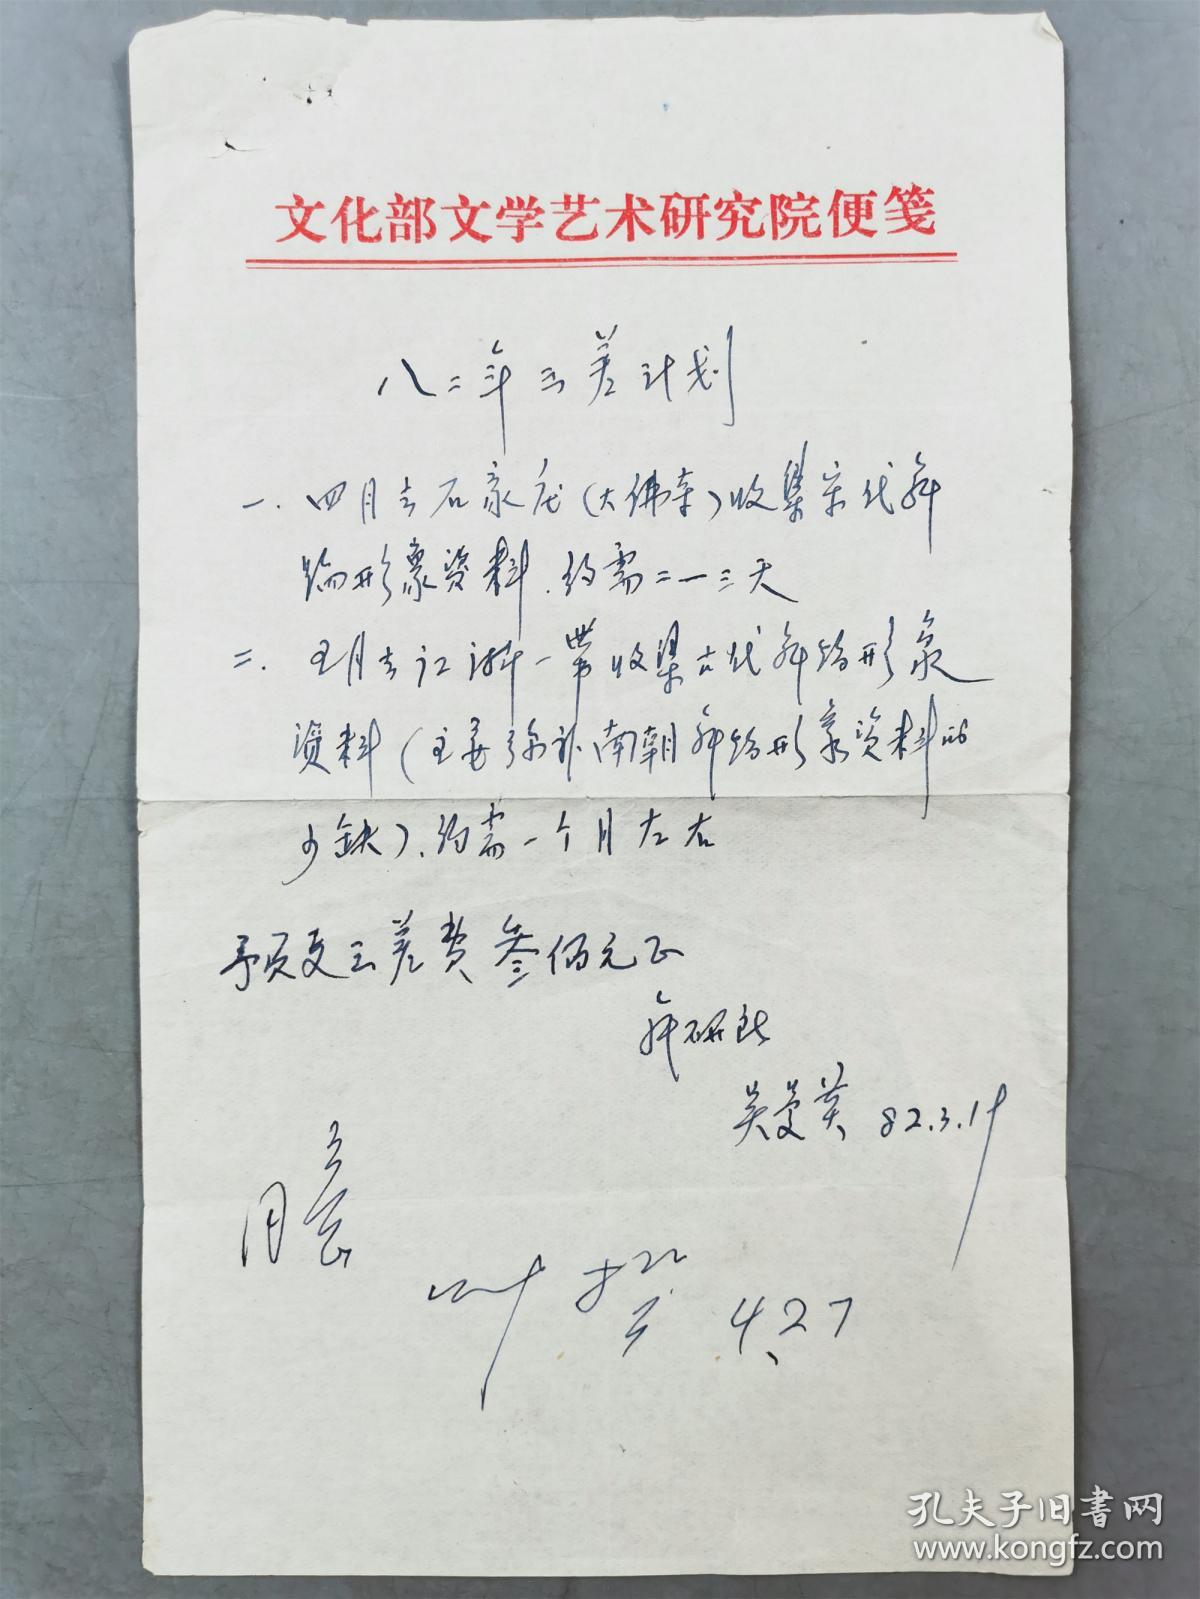 文化部文学艺术研究院便笺
八二年出差计划
一.四月去石家庄(大佛寺)收集宋代舞
蹈形象资料.约需二一三天
二.五月去江浙一带收集古代舞蹈形象
资料(主要弥补南朝舞蹈形象资料的
少缺).约需一个月左右
予页支出差费叁佰元正
舞研所
吴曼英 82.3.19
同意
4.27
孔夫子旧书网
www.kongfz.com